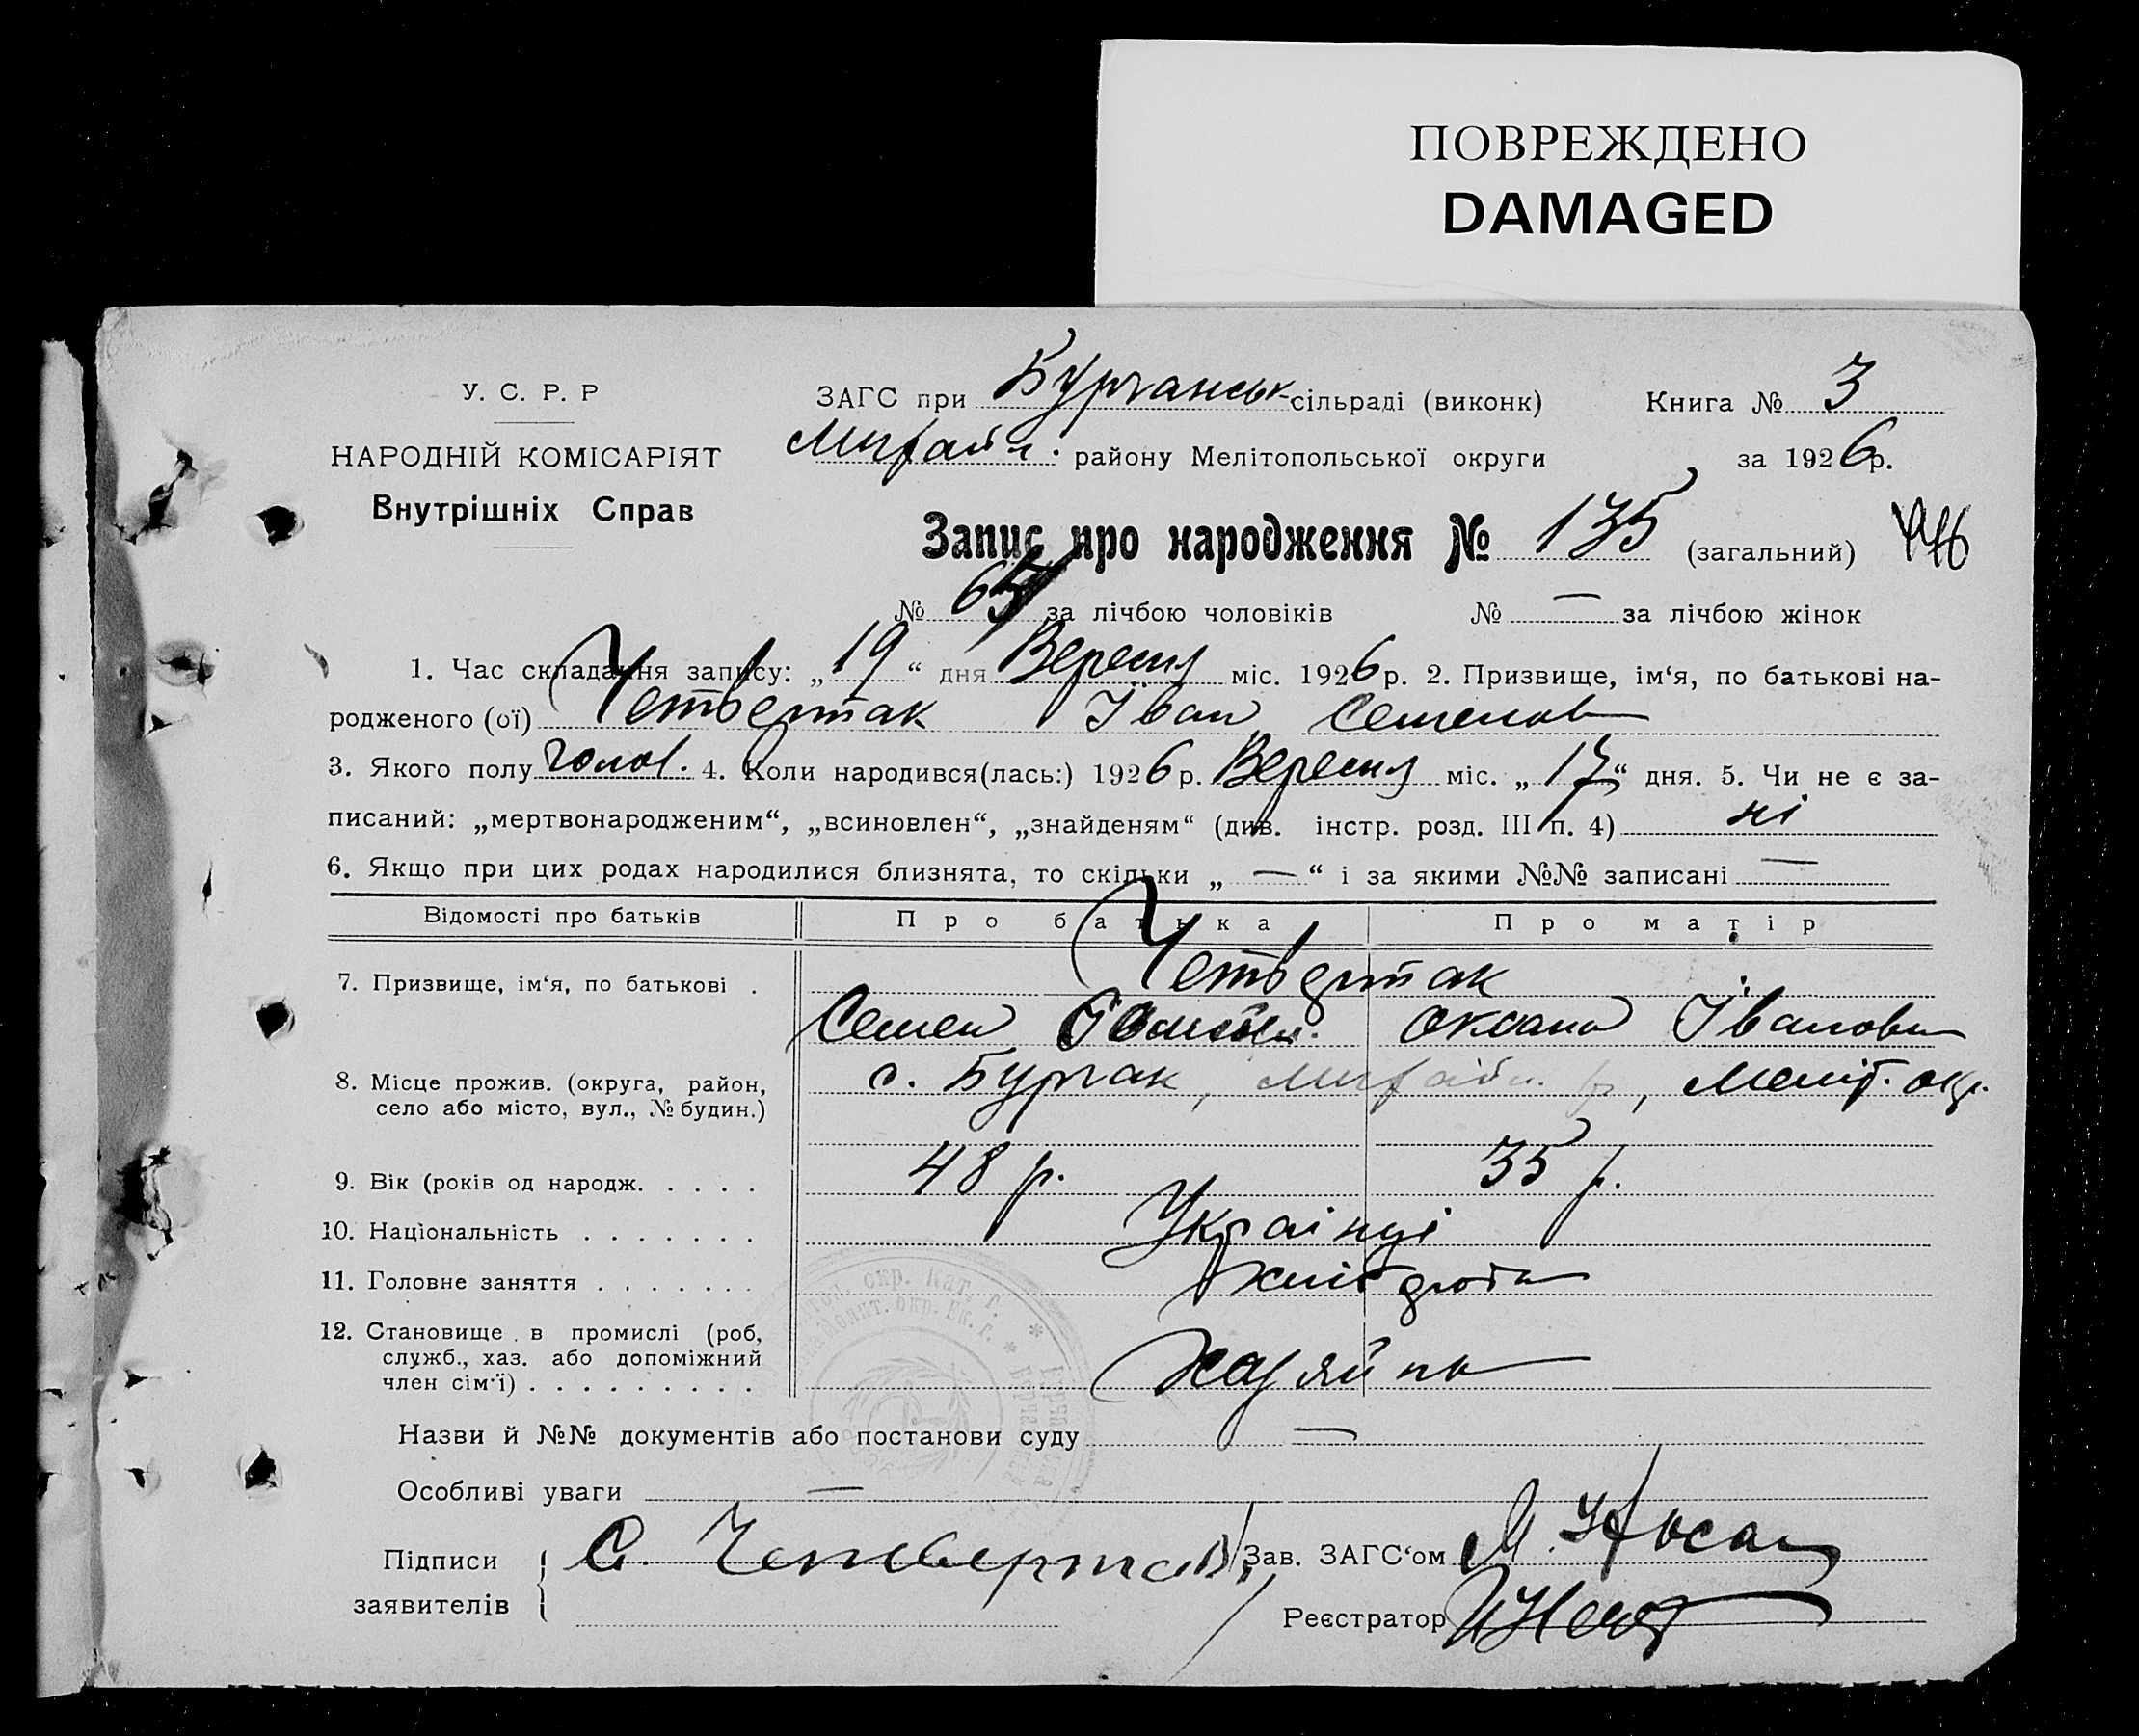 ПОВРЕЖДЕНО
DAMAGED
У. С. Р. Р
НАРОДНІЙ КОМІСАРІЯТ
Внутрішніх Справ
ЗАГС при Бурчанськ сільраді (виконк) Книга № 3
Михайл. району Мелітопольської округи за 1926 р.
Запис про народження № 135 (загальний)
№ 65 за лічбою чоловіків № — за лічбою жінок
1. Час складання запису: „19“ дня Вересня міс. 1926 р. 2. Призвище, ім‘я, по батькові на-
родженого (ої) Четвертак Іван Семенов
3. Якого полу чолов. 4. Коли народився(лась:) 1926 р. Вересня міс. „17“ дня. 5. Чи не є за-
писаний: „мертвонародженим“, „всиновлен“, „знайденям“ (див. інстр. розд. III п. 4) ні
6. Якщо при цих родах народилися близнята, то скільки „ — “ і за якими №№ записані —
Відомості про батьків Про батька Про матір
7. Призвище, ім‘я, по батькові . Четвертак
Семен Оксана Іванова
8. Місце прожив. (округа, район, с. Бурчак, Михайл. р, Меліт. окр.
село або місто, вул., № будин.)
9. Вік (років од народж. . . . . 48 р. 35 р.
10. Національність . . . . . . . Українці
11. Головне заняття . . . . . . . хлібороби
12. Становище в промислі (роб,
служб., хаз. або допоміжний
член сім‘ї) . . . . . . . . . . Хазяйни
Назви й №№ документів або постанови суду —
Особливі уваги —
Підписи С. Четвертак Зав. ЗАГС‘ом
заявителів Реєстратор